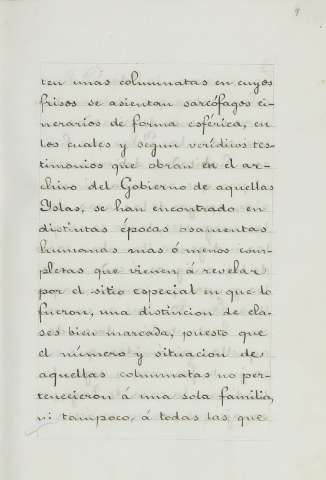 9
ten unas columnatas en cuyos
frisos se asientan sarcófagos ci-
nerarios de forma esférica, en
los cuales y segun verídicos tes-
timonios que obran en el ar-
chivo del Gobierno de aquellas
Yslas, se han encontrado en
distintas épocas osamentas
humanas mas ó menos com-
pletas que vienen á revelar
por el sitio especial en que lo
fueron, una distincion de cla-
ses bien marcada, puesto que
el número y situacion de
aquellas columnatas no per-
tenecieron á una sola familia,
ni tampoco, á todas las que